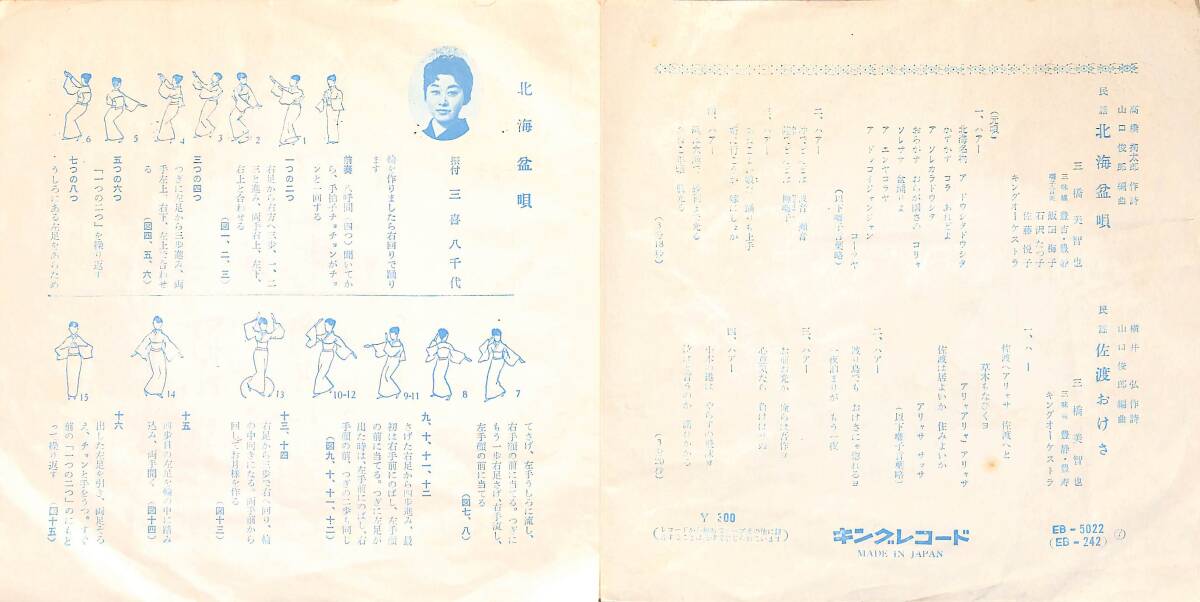 北海盆唄
振付 三喜八千代
輪を作りましたら右回りで踊り
ます
前奏 八呼間(四つ)聞いてか
ら、手拍子チョチョンがチョ
ンと一回する
一つの二つ
右足から右方へ三歩、一、二
三と進み、両手右上、左下、
右上と合わせる
(図一、二、三)
三つの四つ
つぎに左足から三歩進み、両
手左上、右下、左上で合わせ
る
(図四、五、六)
五つの六つ
「一つの二つ」を繰り返す
七つの八つ
うしろにある左足かあらため
1
2
3
4
5
6
てさげ、左手うしろに流し、
右手顔の前に当てる。つぎに
もう一歩右足さげ、右手流し、
左手顔の前に当てる
(図七、八)
九、十、十一、十二
さげた右足から四歩進み、最
初は右手前にのばし、左手顔
の前に当てる。つぎに左足が
出た時は、左手前にのばし、右
手顔の前、つぎの二歩も同じ
(図九、十、十一、十二)
十三、十四
右足から三歩で右へ回り、輪
の中向きになる。両手前から
回してお月様を作る
(図十三)
十五
四歩目の左足を輪の中に踏み
込み、両手開く
(図十四)
十六
出した左足を引き、両足そろ
え、チョンと手をうつ。すぐ
前の「一つの二つ」のにもど
って繰り返す
(図十五)
7
8
9-11
10-12
13
14
15
山口俊郎 編曲
民謡 北海盆唄
三橋美智也
三味線 豊吉・豊静
飯田梅子
石沢たつ子
佐藤悦子
キングオーケストラ
(元唄)
一、ハアー
北海名物 ア ドウシタドウシタ
かずかず コラ あれどよ
ア ソレカラドウシタ
おらがナ おらが国さの コリャ
ソレサナ 盆踊りよ
ア エンヤコラヤ
ア ドッコイジャンジャン
コーラヤ
(以下囃子言葉略)
二、ハアー
三、ハアー
四、ハアー
横井弘 作詩
山口俊郎 編曲
民謡 佐渡おけさ
三橋美智也
三味線 豊静・豊寿
キングオーケストラ
一、ハー
佐渡へアリャサ 佐渡へと
草木もなびくヨ
アリャアリャアリャサ
佐渡は居よいか 住みよいか
アリャサ サッサ
(以下囃子言葉略)
二、ハアー
波の島でも おけさにゃ惚れるヨ
一夜泊まりが もう一夜
三、ハアー
四、ハアー
¥ 300
キングレコード
MADE IN JAPAN
EB-5022
(EB-242)